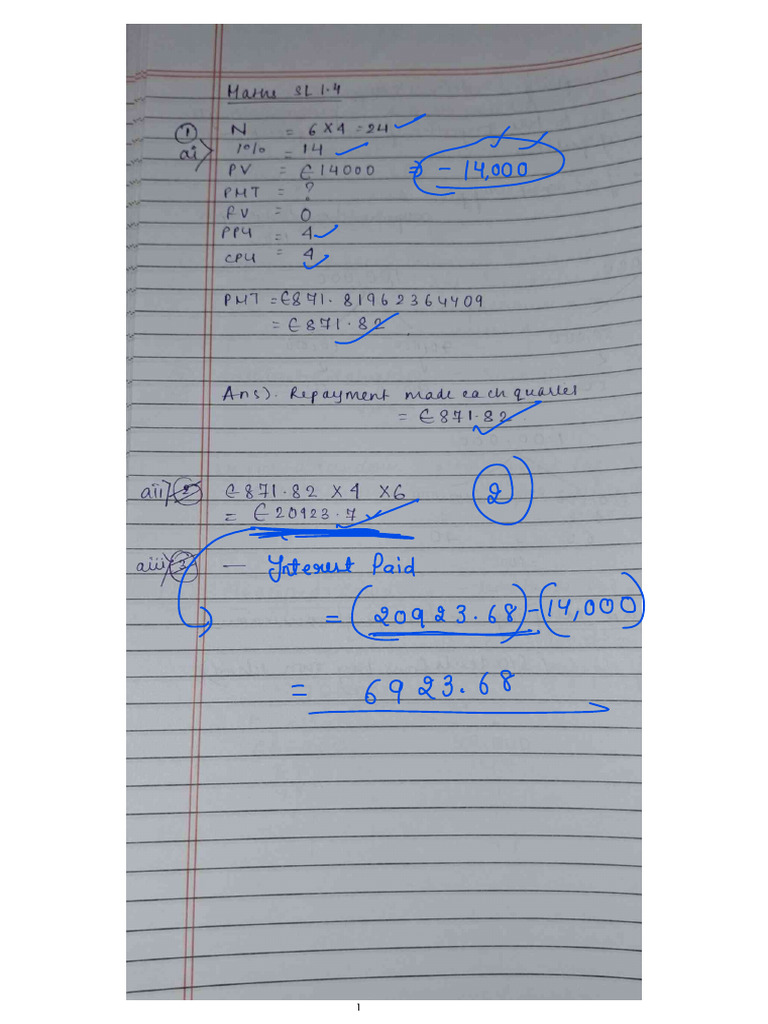 Maths SL 1.4
① N = 6 × 4 = 24 ✓
ai) I% = 14 ✓
PV = €14000 ⇒ - 14,000
PMT = ?
FV = 0
PPY = 4 ✓
CPY = 4 ✓
PMT = €871.81962364409
= €871.82
Ans). Repayment made each quarter
= €871.82
aii) €871.82 × 4 × 6 ②
= €20923.7 ✓
aiii) 3 — Interest Paid
= (20923.68) - (14,000)
= 6923.68
1